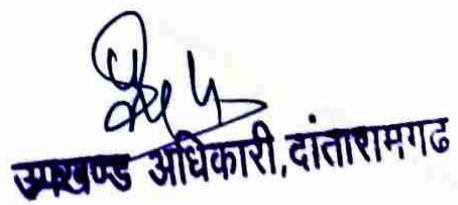 उपखण्ड अधिकारी,दांतारामगढ